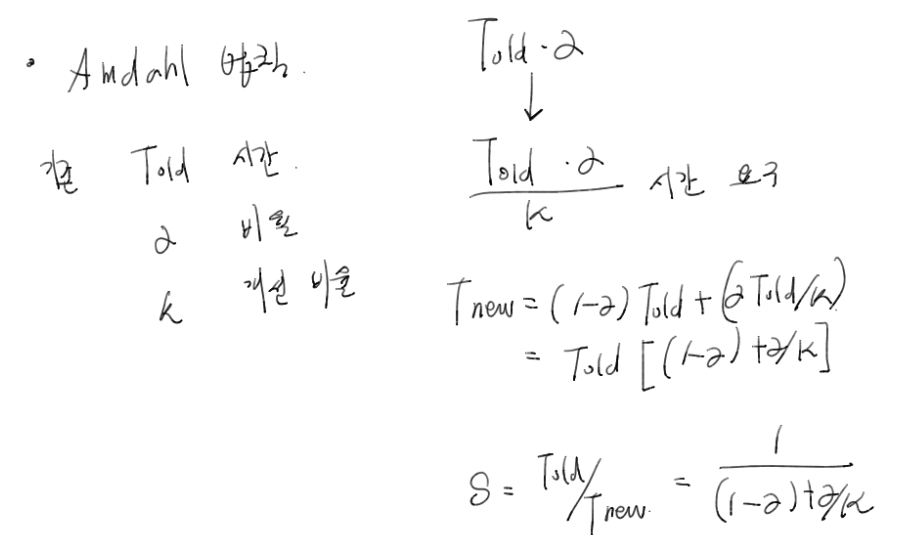 • Amdahl 법칙.
기존 Told 시간.
α 비율
k 개선 비율
Told · α
↓
Told · α / k 시간 요구
Tnew = (1-α) Told + (α Told/k)
= Told [(1-α) + α/k]
S = Told/Tnew. = 1 / (1-α)+α/k